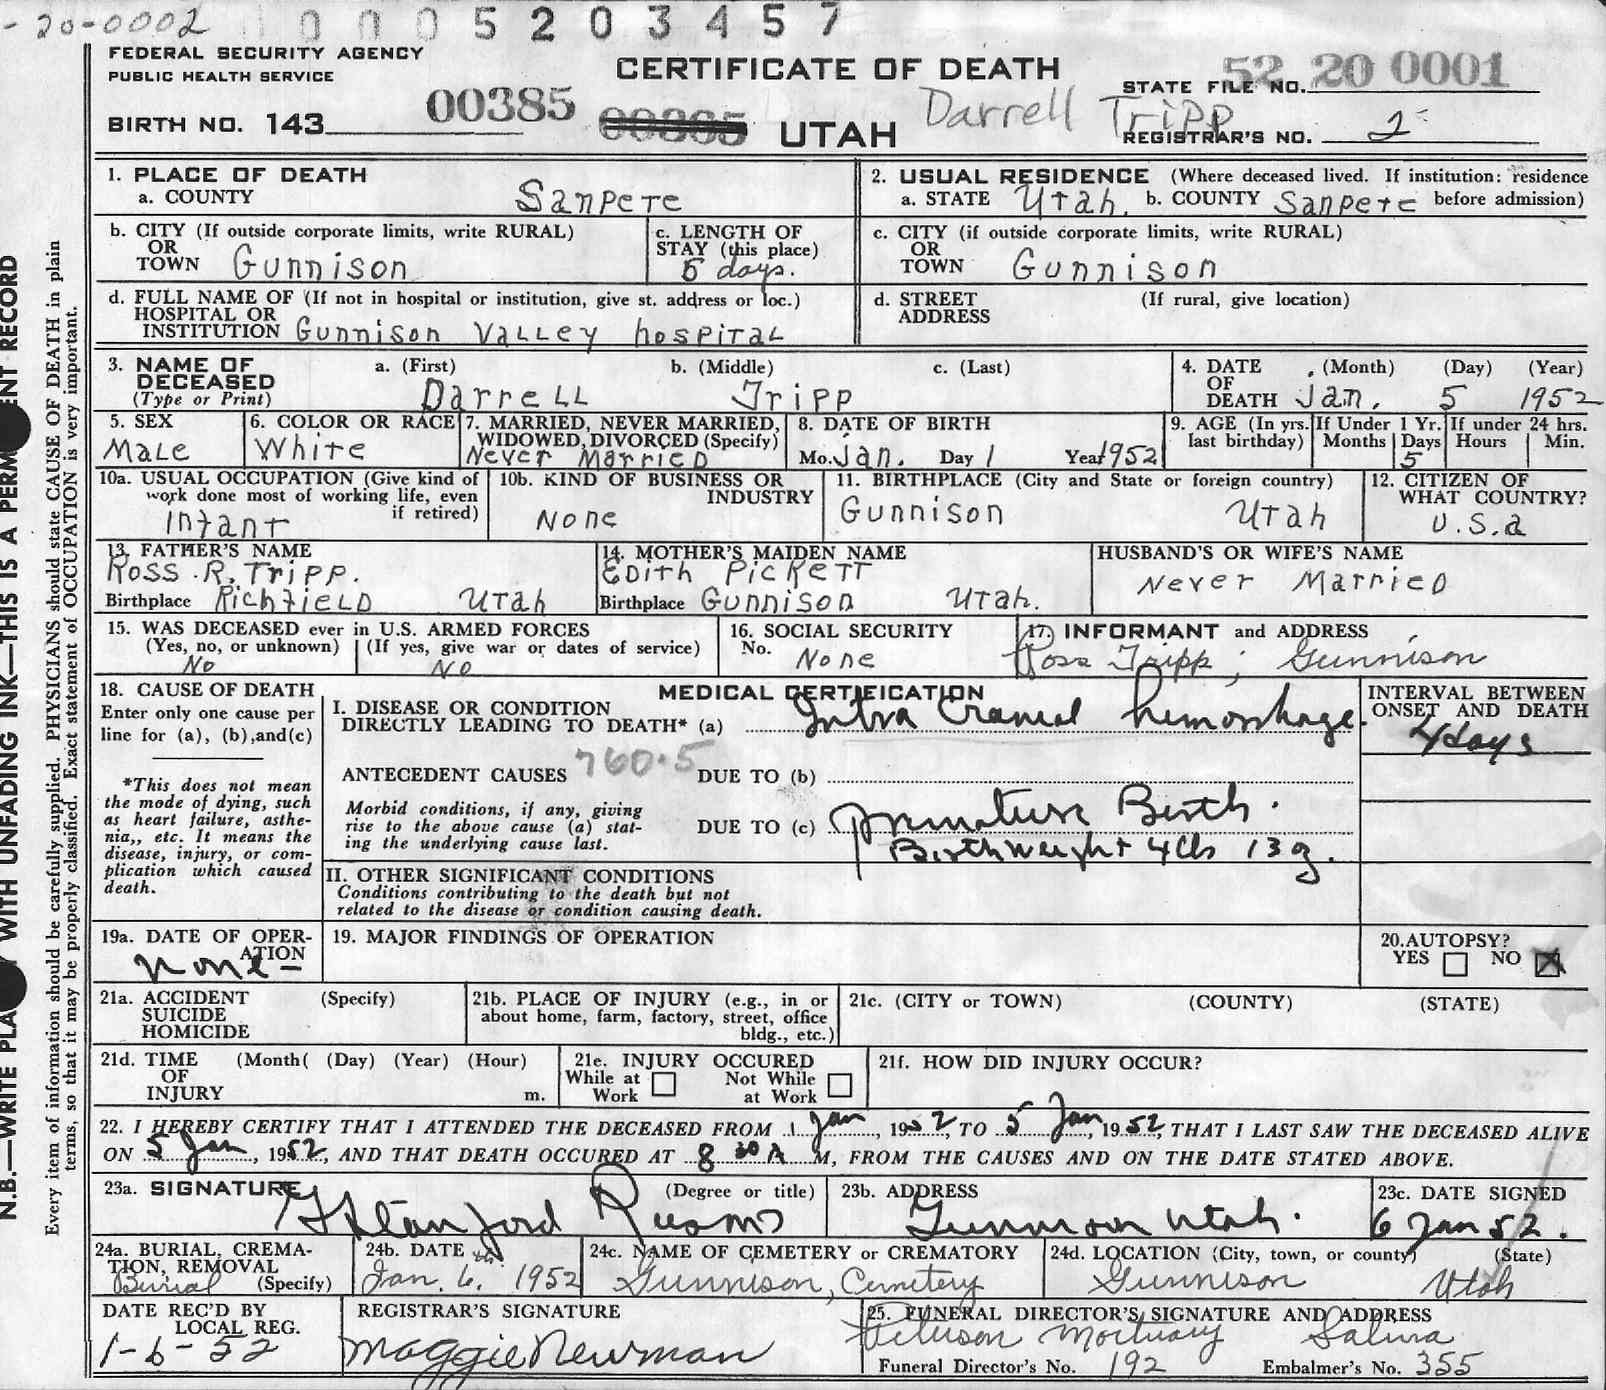 -20-0002 0005203457
FEDERAL SECURITY AGENCY
PUBLIC HEALTH SERVICE
CERTIFICATE OF DEATH
STATE FILE NO. 52 20 0001
BIRTH NO. 143 00385 00385 UTAH Darrell Tripp
REGISTRAR'S NO. 2
1. PLACE OF DEATH
a. COUNTY Sanpete
2. USUAL RESIDENCE (Where deceased lived. If institution: residence
a. STATE Utah. b. COUNTY Sanpete before admission)
b. CITY (If outside corporate limits, write RURAL)
OR
TOWN Gunnison
c. LENGTH OF
STAY (this place)
5 days.
c. CITY (if outside corporate limits, write RURAL)
OR
TOWN Gunnison
d. FULL NAME OF (If not in hospital or institution, give st. address or loc.)
HOSPITAL OR
INSTITUTION Gunnison Valley hospital
d. STREET (If rural, give location)
ADDRESS
3. NAME OF
DECEASED
(Type or Print)
a. (First) b. (Middle) c. (Last)
Darrell Tripp
4. DATE (Month) (Day) (Year)
OF
DEATH Jan. 5 1952
5. SEX
Male
6. COLOR OR RACE
White
7. MARRIED, NEVER MARRIED,
WIDOWED, DIVORCED (Specify)
Never Married
8. DATE OF BIRTH
Mo. Jan. Day 1 Year 1952
9. AGE (In yrs. last birthday)
If Under 1 Yr. Months Days
5
If under 24 hrs. Hours Min.
10a. USUAL OCCUPATION (Give kind of
work done most of working life, even
if retired)
Infant
10b. KIND OF BUSINESS OR
INDUSTRY
None
11. BIRTHPLACE (City and State or foreign country)
Gunnison Utah
12. CITIZEN OF
WHAT COUNTRY?
U.S.a
13. FATHER'S NAME
Ross R. Tripp.
Birthplace Richfield Utah
14. MOTHER'S MAIDEN NAME
Edith Pickett
Birthplace Gunnison Utah.
HUSBAND'S OR WIFE'S NAME
Never Married
15. WAS DECEASED ever in U.S. ARMED FORCES
(Yes, no, or unknown) (If yes, give war or dates of service)
No No
16. SOCIAL SECURITY
No. None
17. INFORMANT and ADDRESS
Ross Tripp; Gunnison
18. CAUSE OF DEATH
Enter only one cause per
line for (a), (b),and(c)
*This does not mean
the mode of dying, such
as heart failure, asthe-
nia,, etc. It means the
disease, injury, or com-
plication which caused
death.
MEDICAL CERTIFICATION
I. DISEASE OR CONDITION
DIRECTLY LEADING TO DEATH* (a) Intra Cranial hemorrhage.
INTERVAL BETWEEN
ONSET AND DEATH
4 days
ANTECEDENT CAUSES 760.5 DUE TO (b)
Morbid conditions, if any, giving
rise to the above cause (a) stat-
ing the underlying cause last.
DUE TO (c) premature Birth.
Birthweight 4 lbs 13 oz.
II. OTHER SIGNIFICANT CONDITIONS
Conditions contributing to the death but not
related to the disease or condition causing death.
19a. DATE OF OPER-
ATION
none -
19. MAJOR FINDINGS OF OPERATION
20.AUTOPSY?
YES NO X
21a. ACCIDENT (Specify)
SUICIDE
HOMICIDE
21b. PLACE OF INJURY (e.g., in or
about home, farm, factory, street, office
bldg., etc.)
21c. (CITY or TOWN) (COUNTY) (STATE)
21d. TIME (Month( (Day) (Year) (Hour)
OF
INJURY m.
21e. INJURY OCCURED
While at Work Not While at Work
21f. HOW DID INJURY OCCUR?
22. I HEREBY CERTIFY THAT I ATTENDED THE DECEASED FROM 1 Jan, 1952, TO 5 Jan, 1952, THAT I LAST SAW THE DECEASED ALIVE
ON 5 Jan, 1952, AND THAT DEATH OCCURED AT 8 30 A M, FROM THE CAUSES AND ON THE DATE STATED ABOVE.
23a. SIGNATURE (Degree or title)
Stanford Rees MD
23b. ADDRESS
Gunnison Utah.
23c. DATE SIGNED
6 Jan 52.
24a. BURIAL, CREMA-
TION, REMOVAL
Burial (Specify)
24b. DATE
Jan. 6th 1952
24c. NAME OF CEMETERY OR CREMATORY
Gunnison, Cemetery
24d. LOCATION (City, town, or county) (State)
Gunnison Utah
DATE REC'D BY
LOCAL REG.
1-6-52
REGISTRAR'S SIGNATURE
Maggie Newman
25. FUNERAL DIRECTOR'S SIGNATURE AND ADDRESS
Peterson Mortuary Salina
Funeral Director's No. 192 Embalmer's No. 355
N.B.—WRITE WITH UNFADING INK—THIS IS A RECORD
Every item of information should be carefully supplied. PHYSICIANS should state CAUSE OF DEATH in plain
terms, so that it may be properly classified. Exact statement of OCCUPATION is very important.